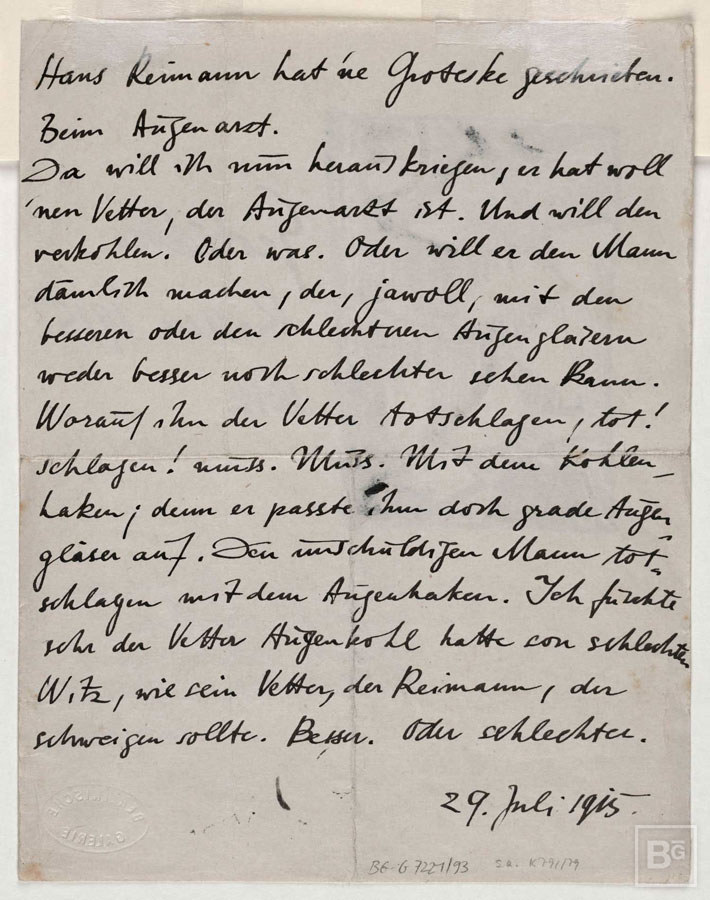 Hans Reimann hat 'ne Groteske geschrieben.
Beim Augenarzt.
Da will ich nun herauskriegen, er hat woll
'nen Vetter, der Augenarzt ist. Und will den
verkohlen. Oder was. Oder will er den Mann
dämlich machen, der, jawoll, mit den
besseren oder den schlechteren Augengläsern
weder besser noch schlechter sehen kann.
Worauf ihn der Vetter totschlagen, tot!
schlagen! muss. Muss. Mit dem Kohlen-
haken; denn er passte ihm doch grade Augen-
gläser auf. Den unschuldigen Mann tot-
schlagen mit dem Augenhaken. Ich fürchte
sehr der Vetter Augenkohl hatte son schlechten
Witz, wie sein Vetter, der Reimann, der
schweigen sollte. Besser. Oder schlechter.
29. Juli 1915.
BERLINISCHE GALERIE
BG-G 7221/93
K 791/79
BG